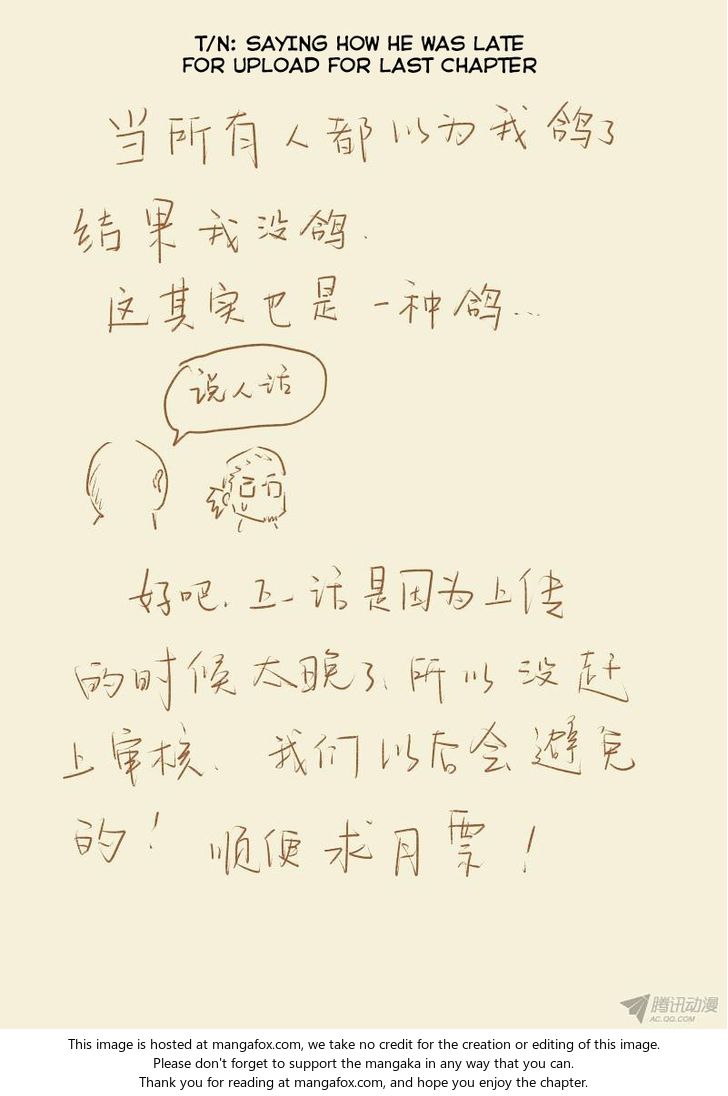 T/N: SAYING HOW HE WAS LATE
FOR UPLOAD FOR LAST CHAPTER
当所有人都以为我鸽了
结果我没鸽.
这其实也是一种鸽...
说人话
好吧.上一话是因为上传
的时候太晚了、所以没赶
上审核. 我们以后会避免
的! 顺便求月票!
腾讯动漫
AC.QQ.COM
This image is hosted at mangafox.com, we take no credit for the creation or editing of this image.
Please don't forget to support the mangaka in any way that you can.
Thank you for reading at mangafox.com, and hope you enjoy the chapter.